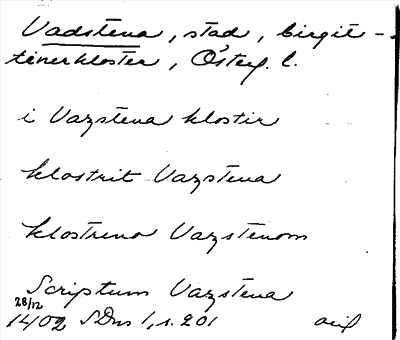 Vadstena, stad, birgit-
tinerkloster, Österg. l.
i Vazstena klostir
klostrit Vazstena
klostreno Vazstenom
Scriptum Vazstena
28/12
1402 SDns 1, s. 201